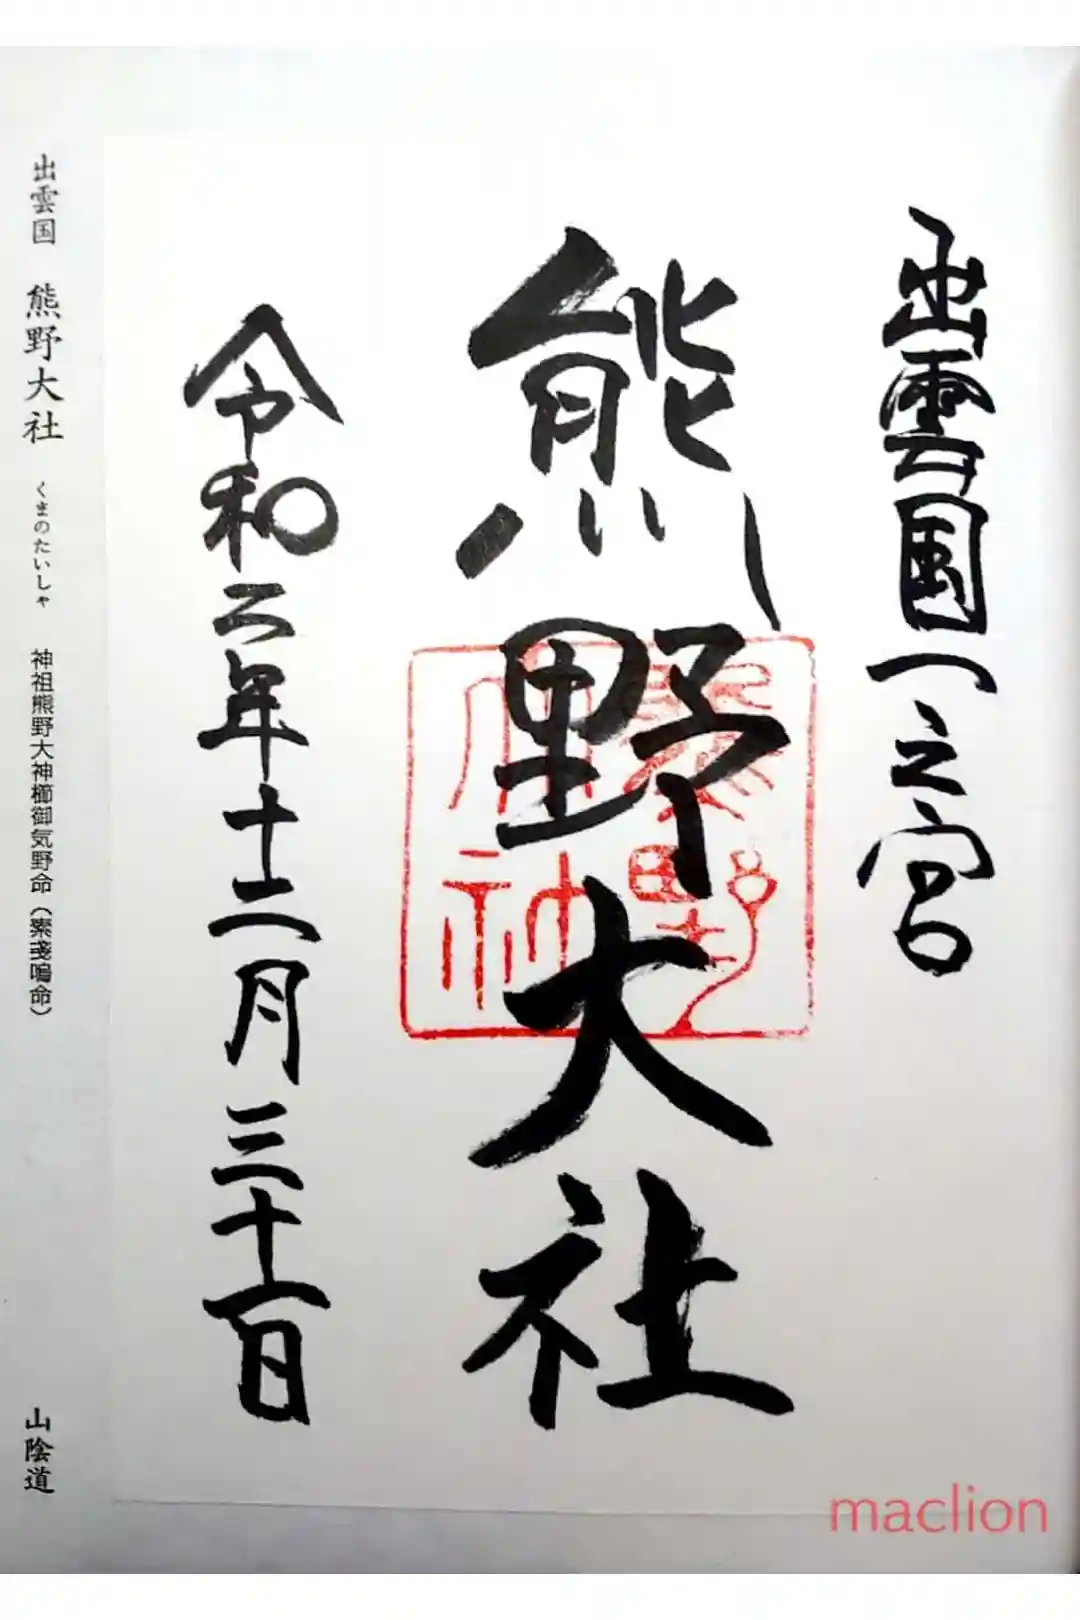 出雲國一之宮
熊野大社
令和二年十二月三十一日
熊野大社
出雲国 熊野大社 くまのたいしゃ 神祖熊野大神櫛御気野命（素戔嗚命） 山陰道
maclion